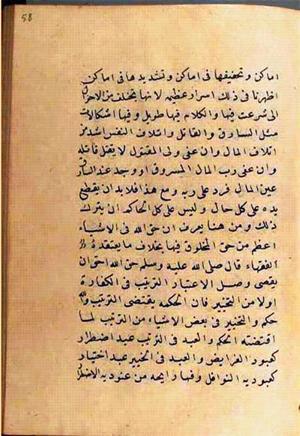 58
اماكن وتخفيفها فى اماكن وتشديدها فى اماكن
اظهرنا فى ذلك اسرارا عظيمة لانها تختلف من الاحوال
التى شرعت فيها والكلام فيها طويل وفيها اشكالات
مثل السارق والقاتل واتلاف النفس اشد من
اتلاف المال وان عفى ولى المقتول لا يقتل قاتله
وان عفى رب المال المسروق او وجد عند السارق
عين المال فرد على ربه ومع هذا فلا بد ان يقطع
يده على كل حال وليس على كل الحاكم ان يترك
ذلك ومن هنا يعرف ان حق الله فى الاشياء
اعظم من حق المخلوق فيها بخلاف ما يعتقده
الفقهاء قال صلى الله عليه وسلم حق الله احق ان
يقضى وصل الاعتبار الترتيب فى الكفارة
اولا من التخيير فان الحكمة يقتضى الترتيب والله
حكيم والتخيير فى بعض الاشياء من الترتيب لما
اقتضته الحكمة والعبد فى الترتيب عبد اضطرار
كعبودية الفرايض والعبد فى التخيير عبد اختيار
كعبودية النوافل وفيها رايحة من عبودية الاضطرار